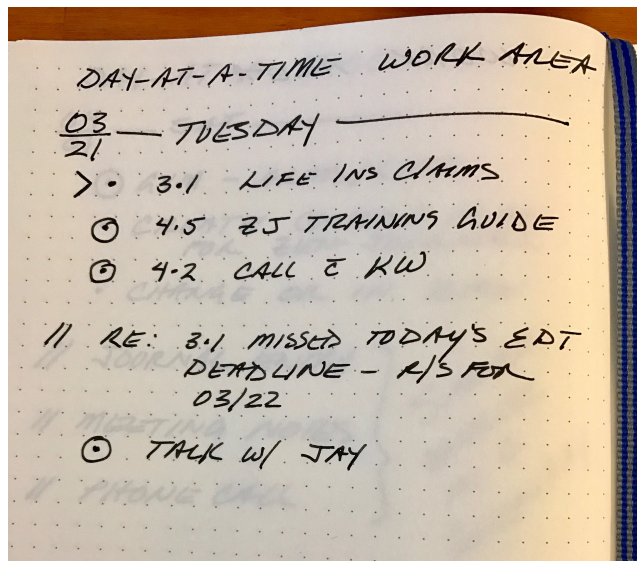 DAY-AT-A-TIME WORK AREA
03/21 — TUESDAY —
> • 3.1 LIFE INS CLAIMS
⊙ 4.5 ZJ TRAINING GUIDE
⊙ 4.2 CALL c̄ KW
// RE: 3.1 MISSED TODAY'S EDT
DEADLINE – R/S FOR
03/22
⊙ TALK W/ JAY
// MEETING NOTES
// PHONE CALL